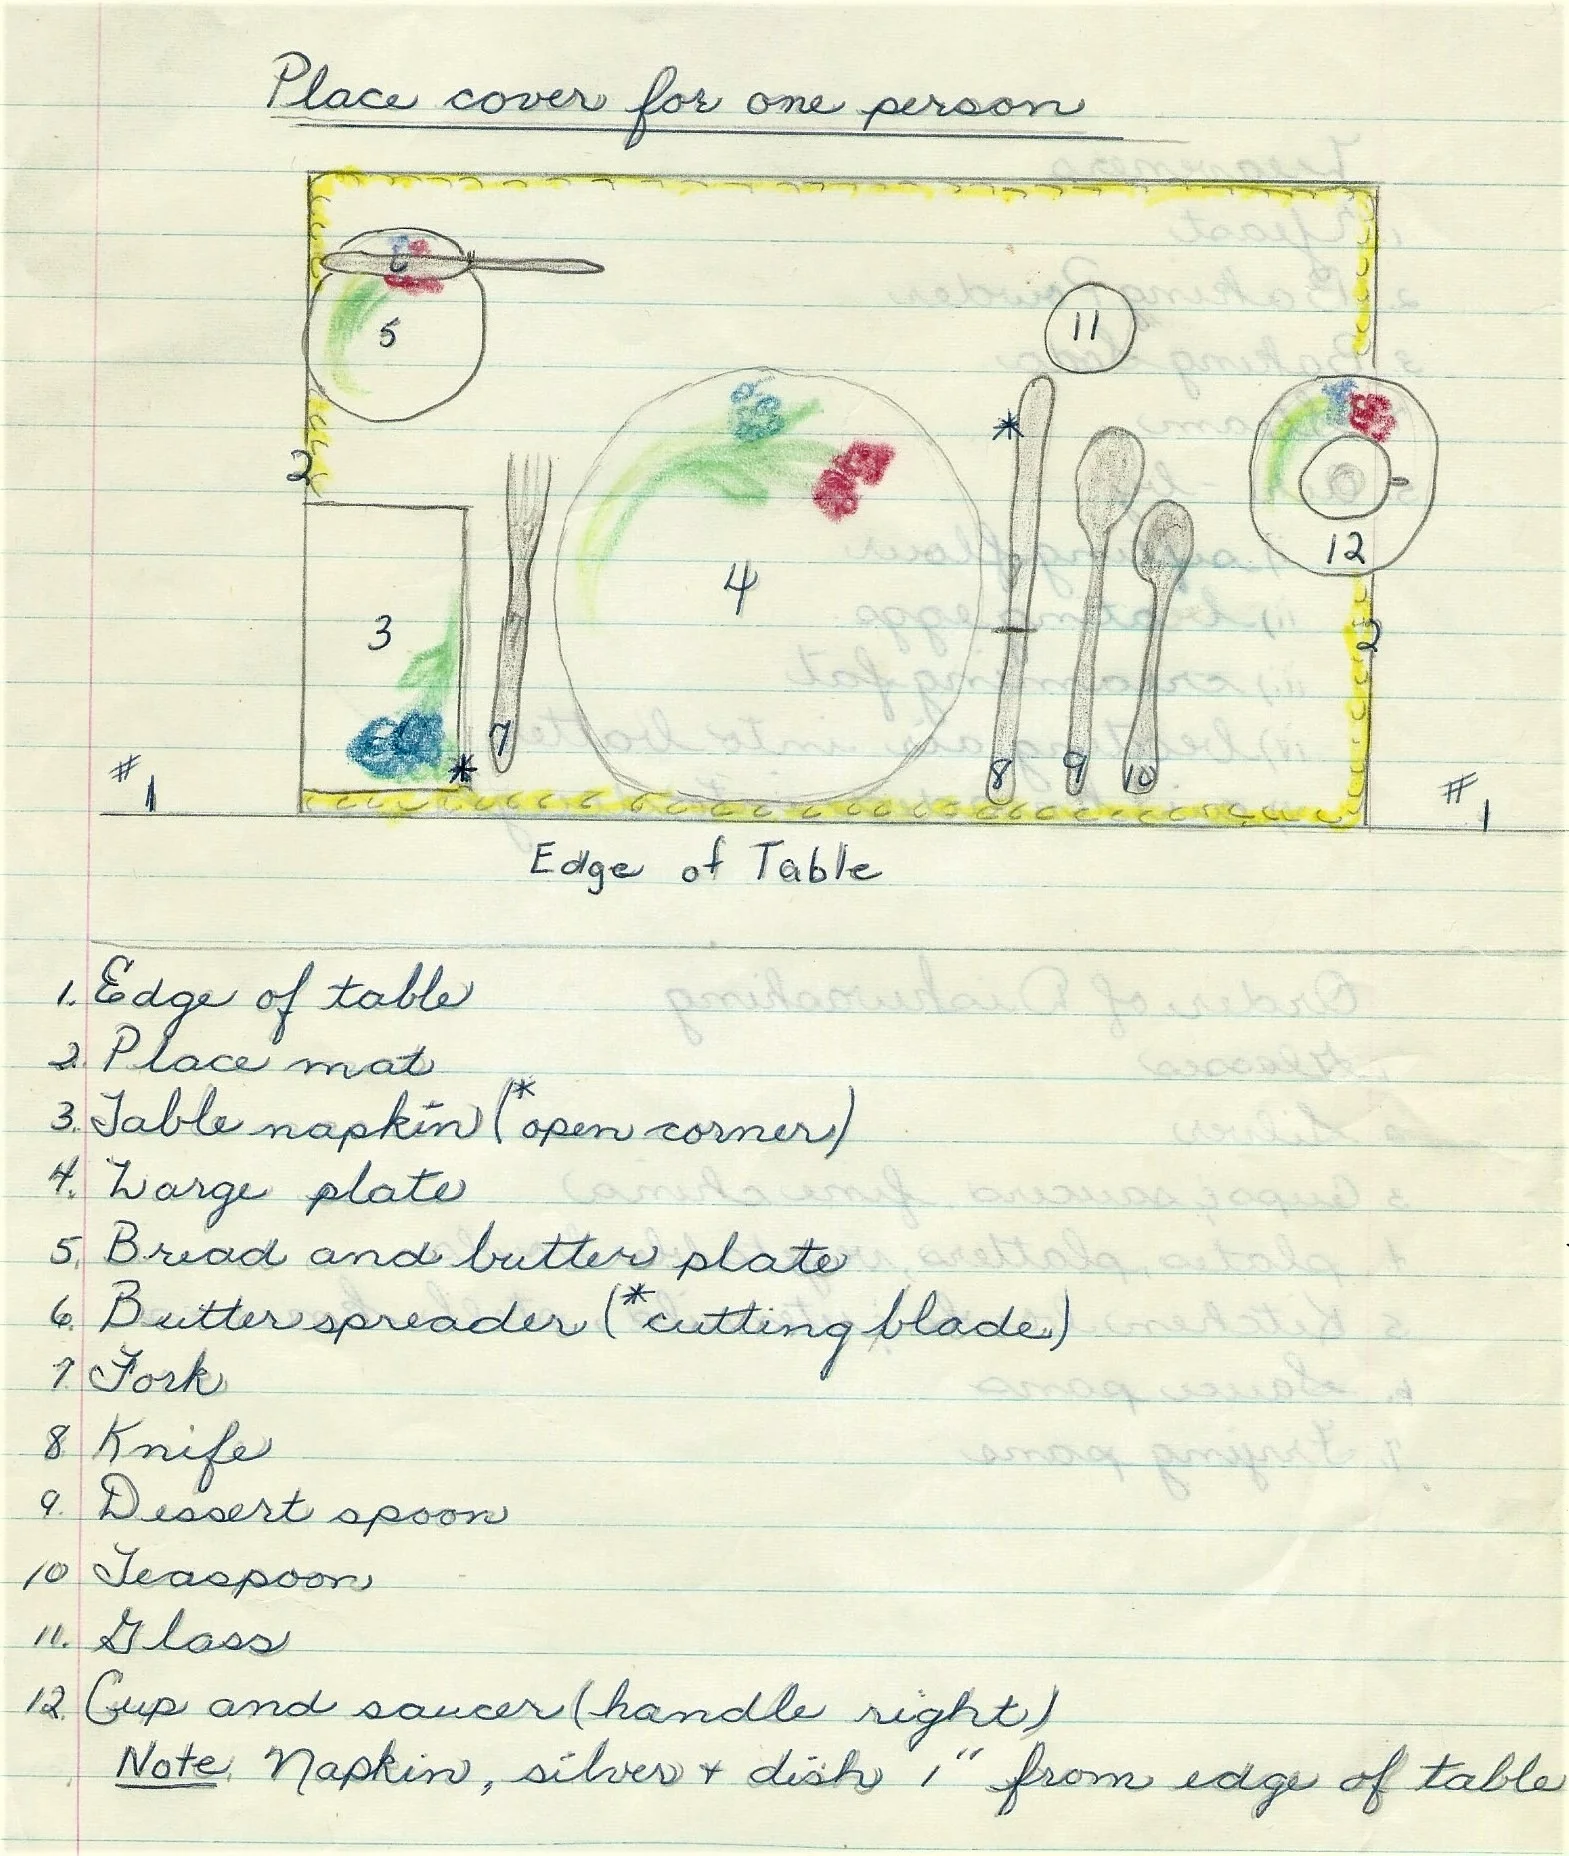 Place cover for one person
6
5
11
*
2
12
4
3
2
7
8
9
10
*
# 1
# 1
Edge of Table
1. Edge of table
2. Place mat
3. Table napkin (*open corner)
4. Large plate
5. Bread and butter plate
6. Butter spreader (*cutting blade)
7. Fork
8 Knife
9. Dessert spoon
10 Teaspoon
11. Glass
12. Cup and saucer (handle right)
Note. Napkin, silver + dish 1" from edge of table